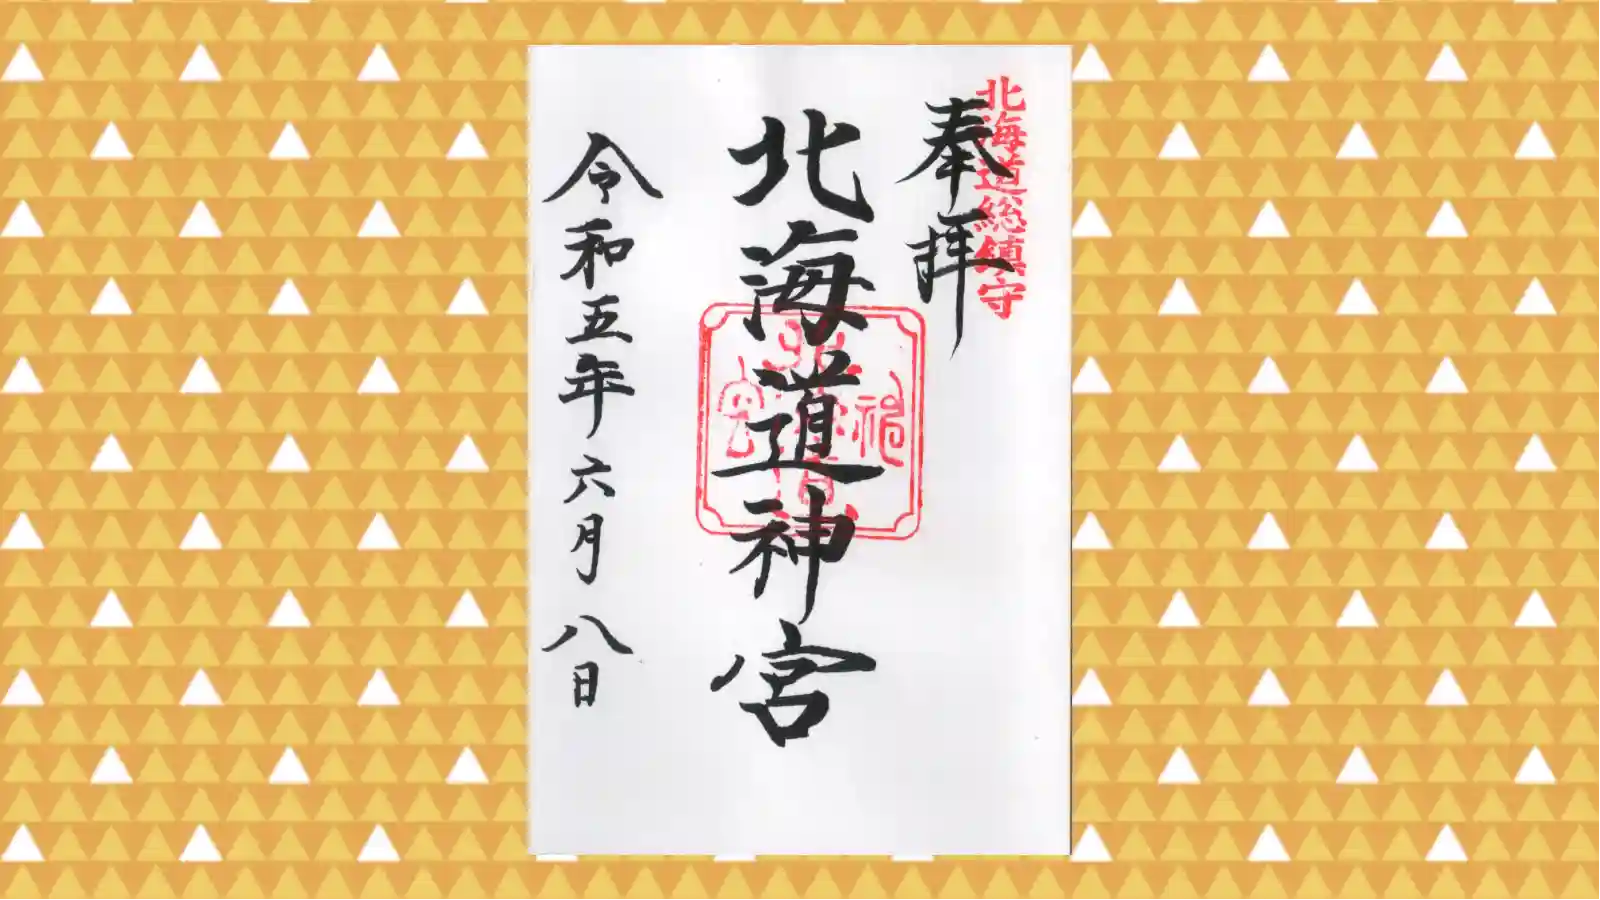 北海道総鎮守
奉拝
北海道神宮
令和五年六月八日